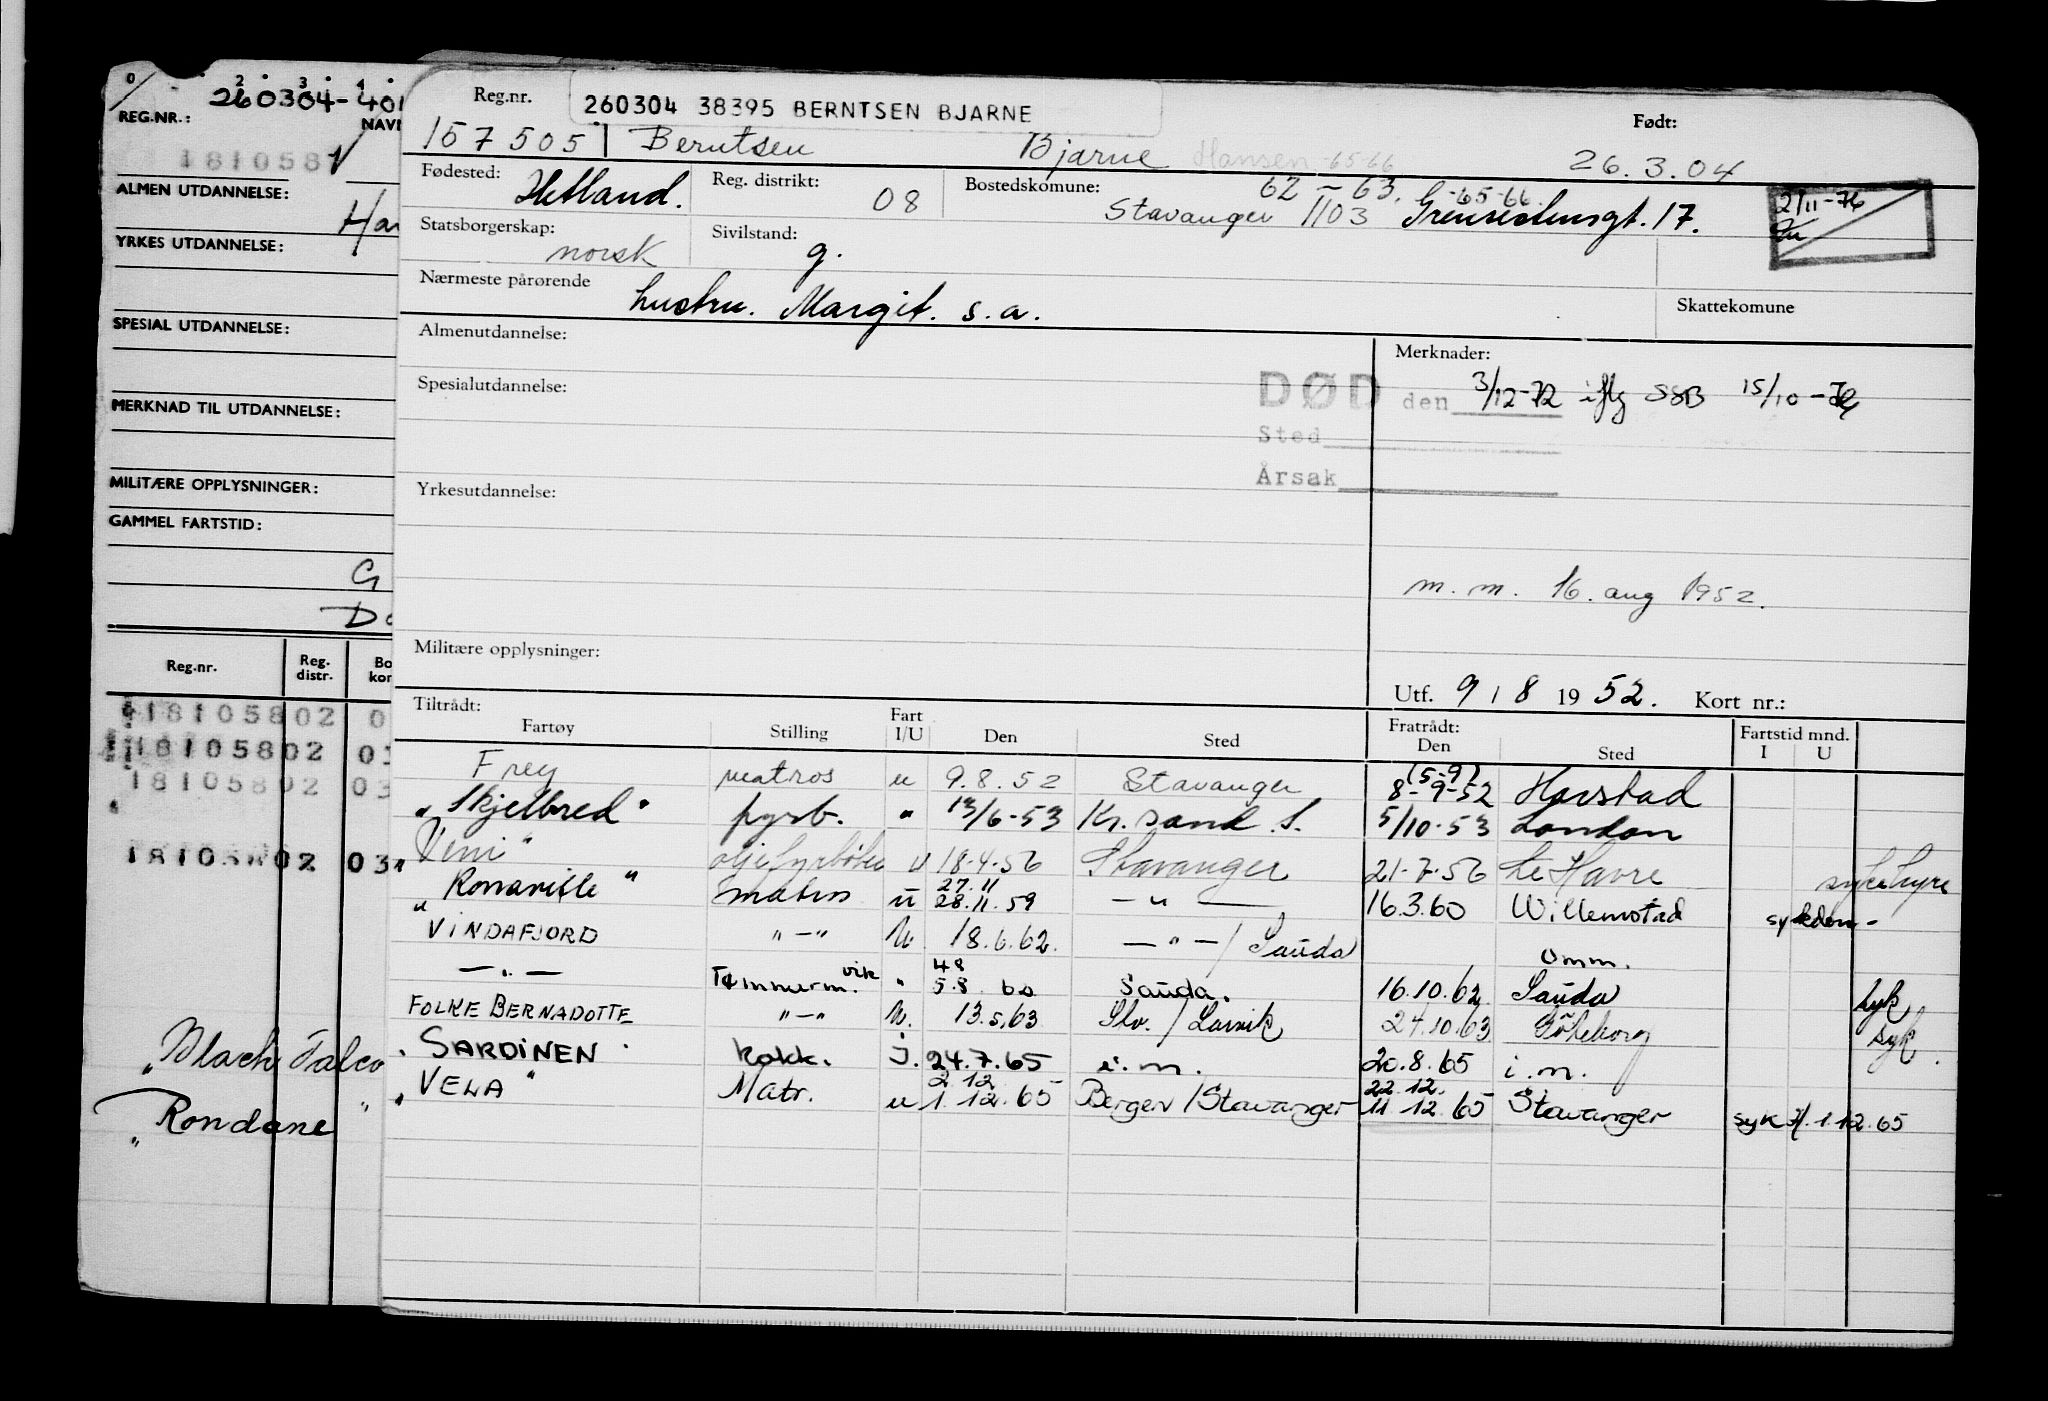 0 2 3 4
260304-401
REG.NR.: NAVN
1810581
ALMEN UTDANNELSE:
Han
YRKES UTDANNELSE:
SPESIAL UTDANNELSE:
MERKNAD TIL UTDANNELSE:
MILITÆRE OPPLYSNINGER:
GAMMEL FARTSTID:
G
Do
Reg.nr. Reg. distr. Bo kom
18105802 0
18105802 03
18105802 03
18105802 03
"Black Falcon
"Rondane"
Reg.nr. 260304 38395 BERNTSEN BJARNE Født:
157505 Berntsen Bjarne Hansen -65-66 26.3.04
Fødested: Hetland. Reg. distrikt: 08 Bostedskomune: 62-63. -65-66.
Stavanger 1103 Grenseclensgt. 17. 2/11-76
Statsborgerskap: norsk Sivilstand: g.
Nærmeste pårørende hustru. Margit. s.a. Skattekomune
Almenutdannelse: Merknader:
Spesialutdannelse: DØD den 3/12-72 iflg SSB 15/10-
Sted
Årsak
Yrkesutdannelse:
m.m. 16. aug 1952.
Militære opplysninger:
Utf. 9 / 8 19 52. Kort nr.:
Tiltrådt: Fart Fratrådt: Fartstid mnd.
Fartøy Stilling I/U Den Sted Den Sted I U
Frey matros u 9.8.52 Stavanger (5-9) 8-9-52 Harstad
"Skjelbred" fyrb. " 12/6-53 Kr.sand S. 5/10-53 London
"Veni" oljefyrbøter u 18-4-56 Stavanger 21-7-56 Le Havre sykehyre
"Ronaville" matros u 27.11 28.11.59 -"- 16.3.60 Willemstad sykdom-
VINDAFJORD "-" U. 18.6.62. -"-/Sauda
-"- Tømmerm. vik " 48 5.8.60 Sauda. 16.10.62 Omm. Sauda syk
FOLKE BERNADOTTE "-" U. 13.5.63 Stv./Larvik 24.10.63 Göteborg syk.
"SARDINEN" kokk. I. 24.7.65 i.m. 20.8.65 i.m.
"VELA" Matr. u 2.12. 1.12.65 Bergen/Stavanger 22.12. 11.12.65 Stavanger syk 1.12.65